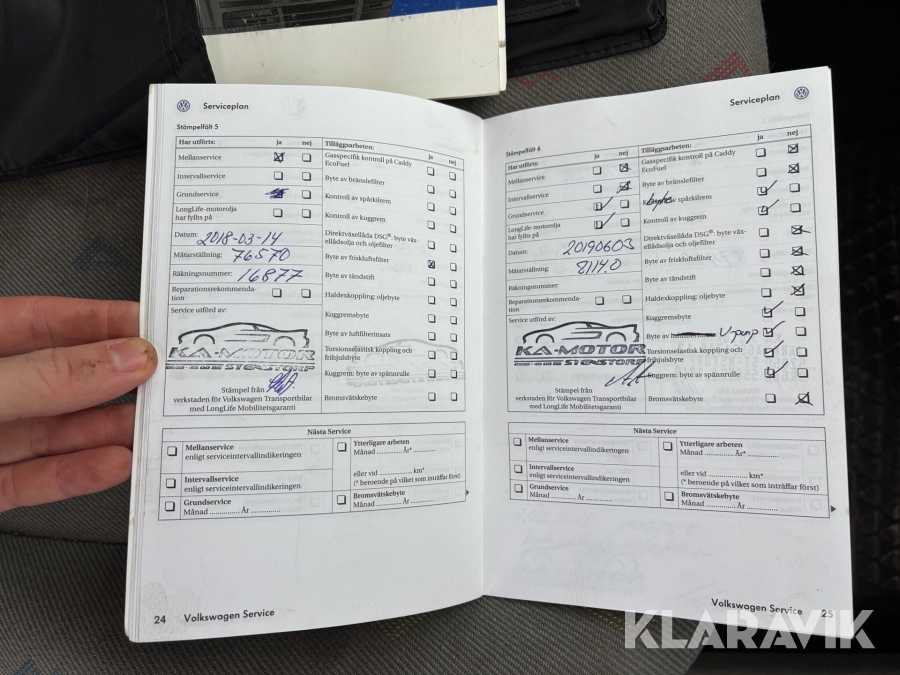 Serviceplan
Stämpelfält 5
Har utförts: ja nej
Mellanservice
Intervallservice
Grundservice
LongLife-motorolja
har fyllts på
Datum: 2018-03-14
Mätarställning: 76570
Räkningsnummer: 16877
Reparationsrekommenda-
tion
Service utförd av:
KA-MOTOR
STENSTORP
Stämpel från
verkstaden för Volkswagen Transportbilar
med LongLife Mobilitetsgaranti
Tilläggsarbeten: ja nej
Gasspecifik kontroll på Caddy
EcoFuel
Byte av bränslefilter
Kontroll av spårkilrem
Kontroll av kuggrem
Direktväxellåda DSG®: byte väx-
ellådsolja och oljefilter
Byte av friskluftsfilter
Byte av tändstift
Haldexkoppling: oljebyte
Kuggremsbyte
Byte av luftfilterinsats
Torsionselastisk koppling och
frihjulsbyte
Kuggrem: byte av spännrulle
Bromsvätskebyte
Nästa Service
Mellanservice
enligt serviceintervallindikeringen
Intervallservice
enligt serviceintervallindikeringen
Grundservice
Månad ............. År .............
Ytterligare arbeten
Månad ............. År* .............
eller vid ................... km*
(* beroende på vilket som inträffar först)
Bromsvätskebyte
Månad ............. År .............
24 Volkswagen Service
Serviceplan
Stämpelfält 6
Har utförts: ja nej
Mellanservice
Intervallservice
Grundservice
LongLife-motorolja
har fyllts på
Datum: 20190603
Mätarställning: 81140
Räkningsnummer:
Reparationsrekommenda-
tion
Service utförd av:
KA-MOTOR
STENSTORP
Stämpel från
verkstaden för Volkswagen Transportbilar
med LongLife Mobilitetsgaranti
Tilläggsarbeten: ja nej
Gasspecifik kontroll på Caddy
EcoFuel
Byte av bränslefilter
byte av spårkilrem
Kontroll av kuggrem
Direktväxellåda DSG®: byte väx-
ellådsolja och oljefilter
Byte av friskluftsfilter
Byte av tändstift
Haldexkoppling: oljebyte
Kuggremsbyte
Byte av V-pump
Torsionselastisk koppling och
frihjulsbyte
Kuggrem: byte av spännrulle
Bromsvätskebyte
Nästa Service
Mellanservice
enligt serviceintervallindikeringen
Intervallservice
enligt serviceintervallindikeringen
Grundservice
Månad ............. År .............
Ytterligare arbeten
Månad ............. År* .............
eller vid ................... km*
(* beroende på vilket som inträffar först)
Bromsvätskebyte
Månad ............. År .............
Volkswagen Service 25
KLARAVIK